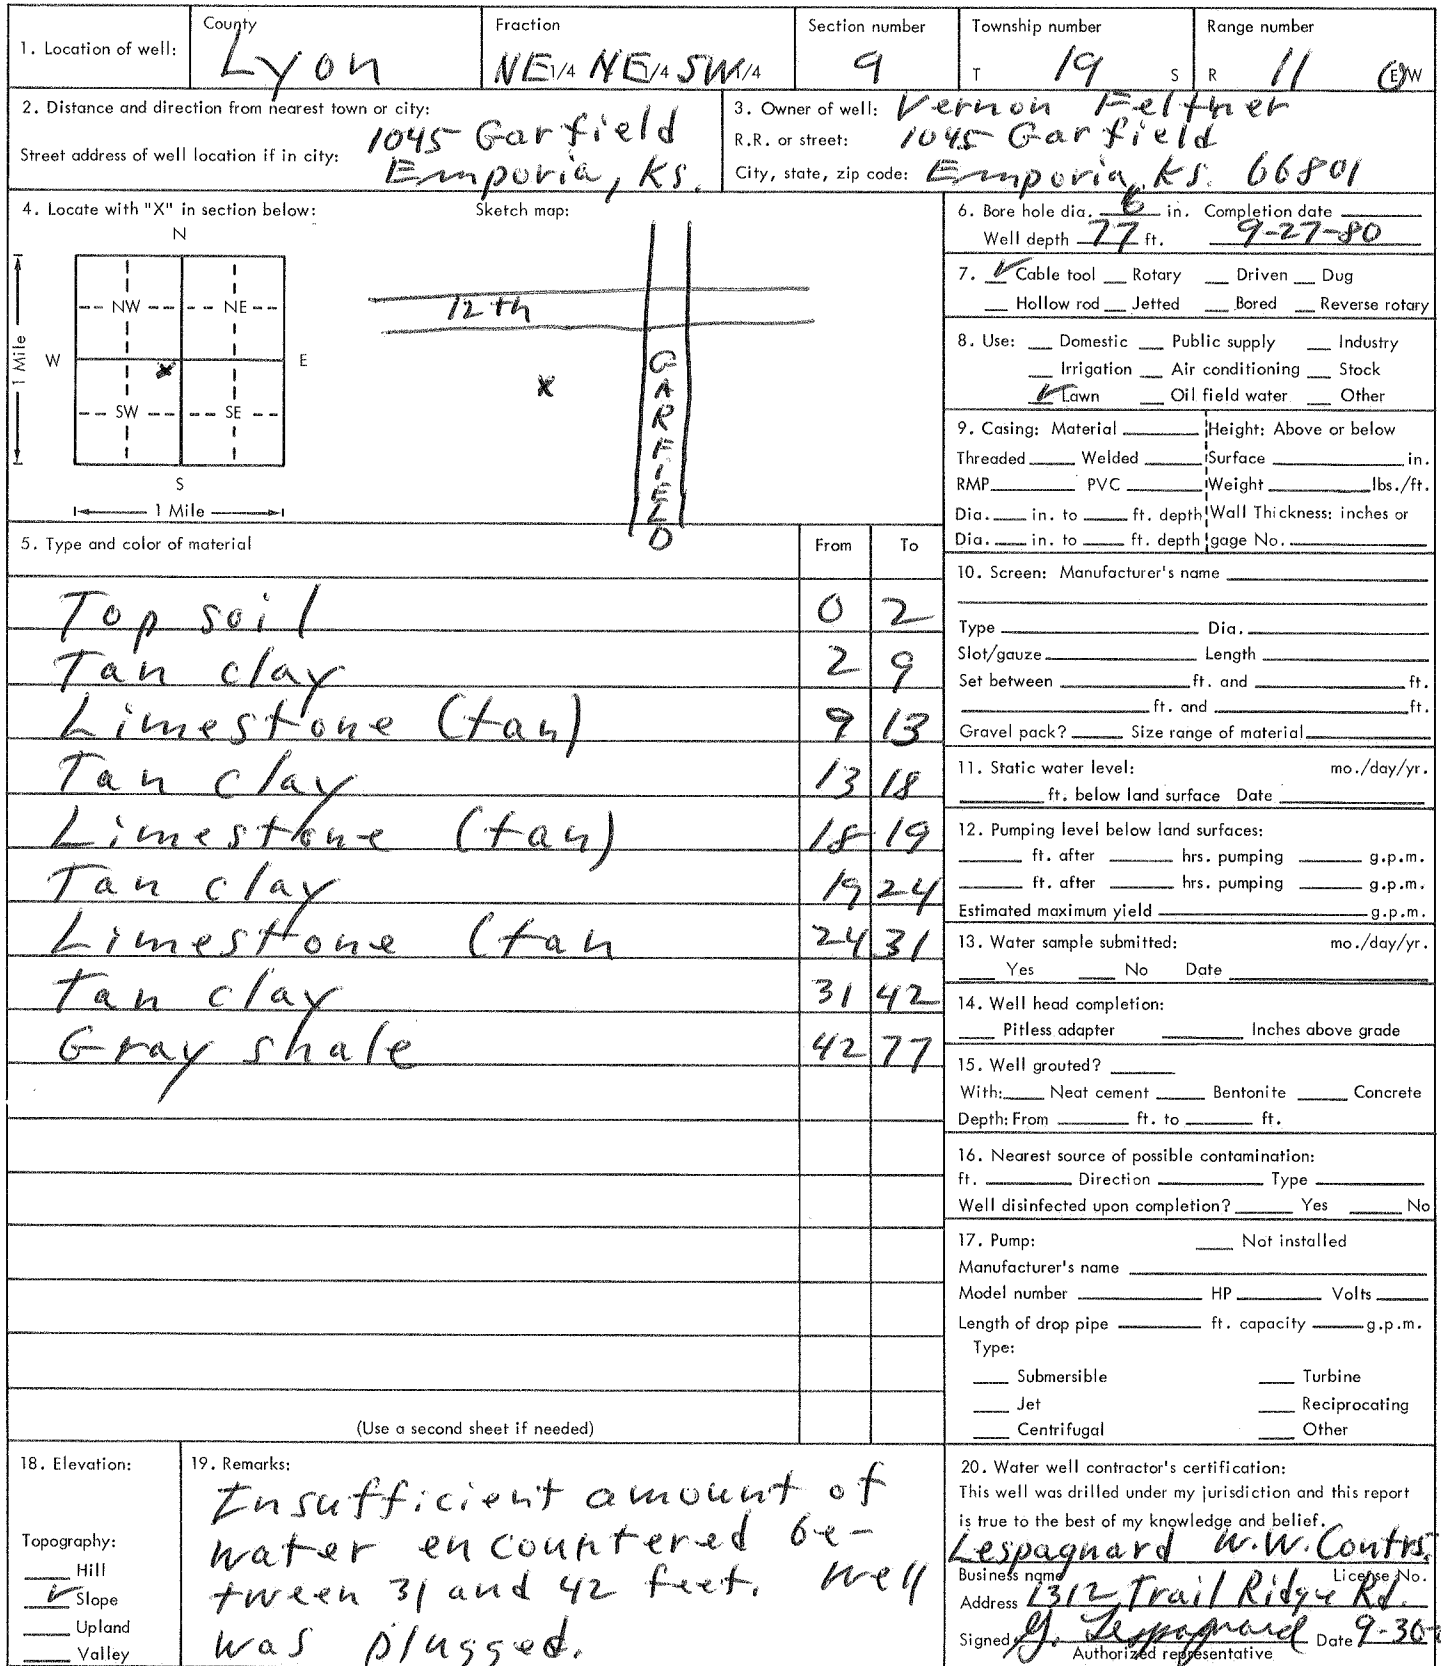 1. Location of well: County Lyon Fraction NE 1/4 NE 1/4 SW 1/4 Section number 9 Township number T 19 S Range number R 11 E/W
2. Distance and direction from nearest town or city: 1045 Garfield
Street address of well location if in city: Emporia, Ks.
3. Owner of well: Vernon Feltner
R.R. or street: 1045 Garfield
City, state, zip code: Emporia, Ks. 66801
4. Locate with "X" in section below:
N
NW NE
W E
X
SW SE
S
1 Mile
1 Mile
Sketch map:
12th
X
GARFIELD
6. Bore hole dia. 6 in. Completion date
Well depth 77 ft. 9-27-80
7. ✓ Cable tool Rotary Driven Dug
Hollow rod Jetted Bored Reverse rotary
8. Use: Domestic Public supply Industry
Irrigation Air conditioning Stock
✓ Lawn Oil field water Other
9. Casing: Material Height: Above or below
Threaded Welded Surface in.
RMP PVC Weight lbs./ft.
Dia. in. to ft. depth Wall Thickness: inches or
Dia. in. to ft. depth gage No.
5. Type and color of material From To
Top soil 0 2
Tan clay 2 9
Limestone (tan) 9 13
Tan clay 13 18
Limestone (tan) 18 19
Tan clay 19 24
Limestone (tan 24 31
Tan clay 31 42
Gray shale 42 77
(Use a second sheet if needed)
10. Screen: Manufacturer's name
Type Dia.
Slot/gauze Length
Set between ft. and ft.
ft. and ft.
Gravel pack? Size range of material
11. Static water level: mo./day/yr.
ft. below land surface Date
12. Pumping level below land surfaces:
ft. after hrs. pumping g.p.m.
ft. after hrs. pumping g.p.m.
Estimated maximum yield g.p.m.
13. Water sample submitted: mo./day/yr.
Yes No Date
14. Well head completion:
Pitless adapter Inches above grade
15. Well grouted?
With: Neat cement Bentonite Concrete
Depth: From ft. to ft.
16. Nearest source of possible contamination:
ft. Direction Type
Well disinfected upon completion? Yes No
17. Pump: Not installed
Manufacturer's name
Model number HP Volts
Length of drop pipe ft. capacity g.p.m.
Type:
Submersible Turbine
Jet Reciprocating
Centrifugal Other
18. Elevation:
Topography:
Hill
✓ Slope
Upland
Valley
19. Remarks:
Insufficient amount of
water encountered be-
tween 31 and 42 feet. Well
was plugged.
20. Water well contractor's certification:
This well was drilled under my jurisdiction and this report
is true to the best of my knowledge and belief.
Lespagnard W.W. Contrs.
Business name License No.
Address 1312 Trail Ridge Rd.
Signed G. Lespagnard Date 9-30-
Authorized representative